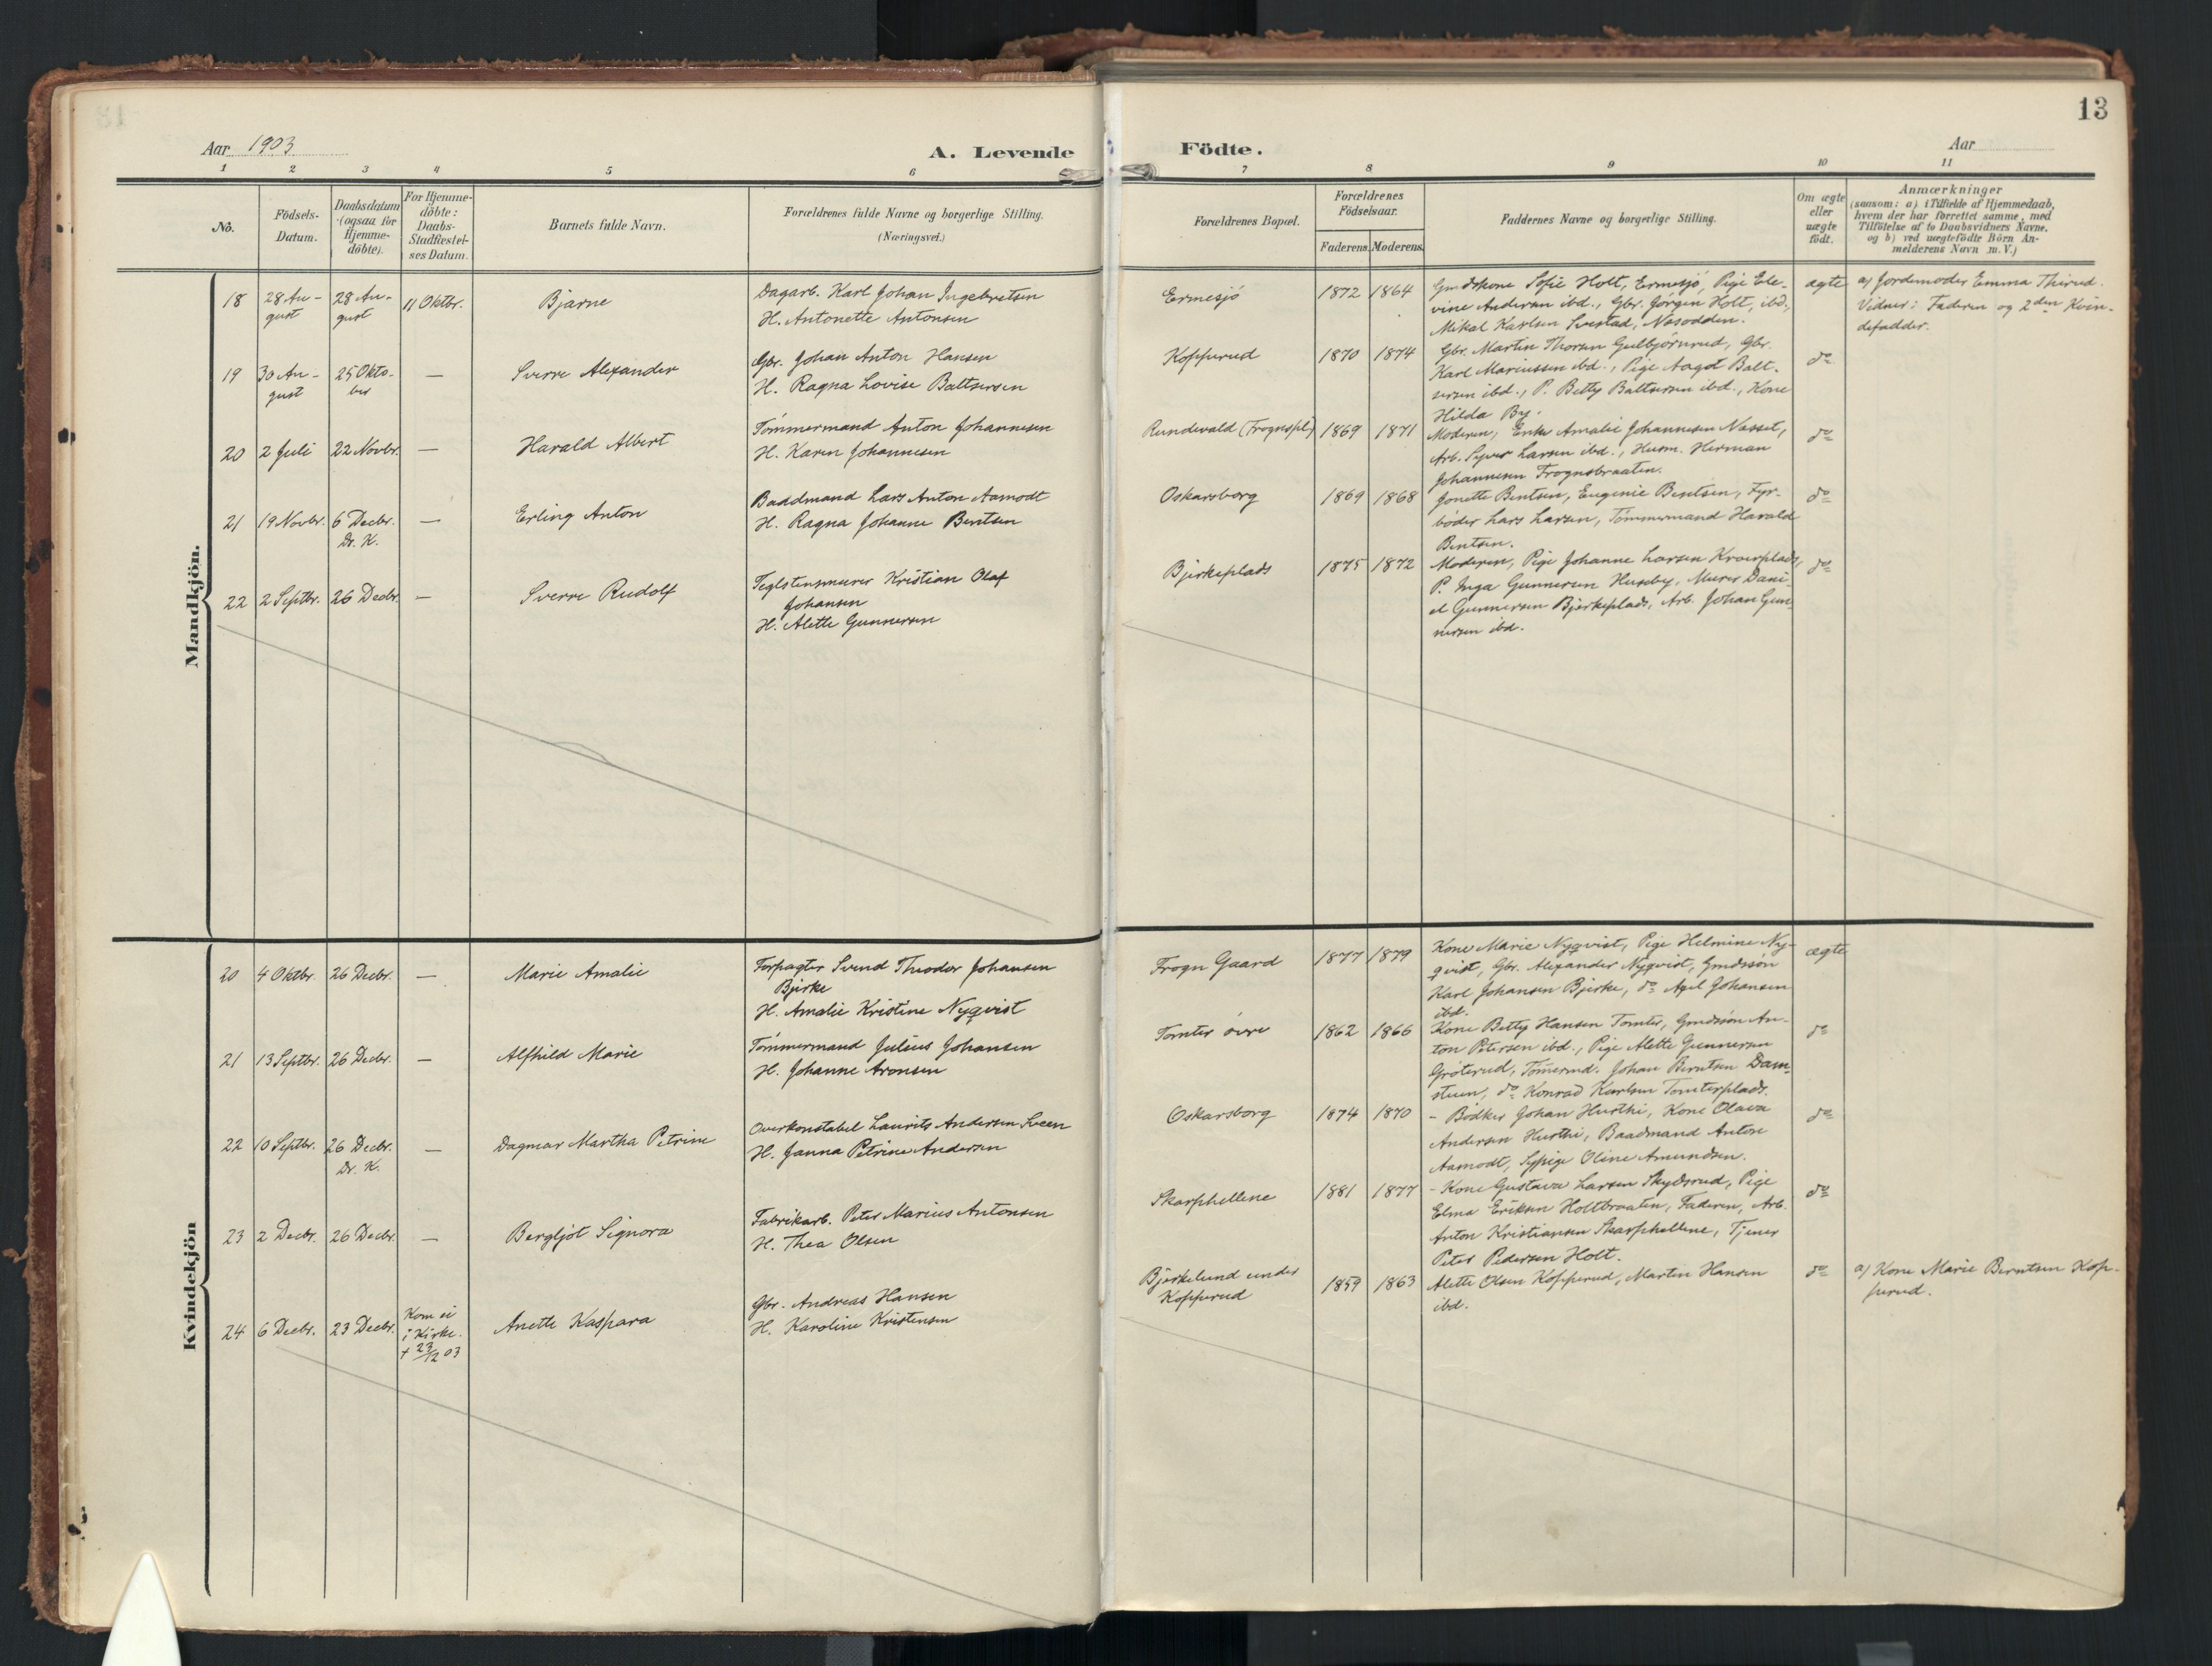 13
Aar 1903
A. Levende
Födte.
Aar
1 2 3 4 5 6
7 8 9 10 11
No.
Födsels-
Datum.
Daabsdatum
(ogsaa for
Hjemme-
döbte).
For Hjemme-
döbte:
Daabs-
Stadfæstel-
ses Datum.
Barnets fulde Navn.
Forældrenes fulde Navne og borgerlige Stilling.
(Næringsvei.)
Forældrenes Bopæl.
Forældrenes
Födselsaar.
Faderens. Moderens.
Faddernes Navne og borgerlige Stilling.
Om ægte
eller
uægte
födt.
Anmærkninger
(saasom: a) i Tilfælde af Hjemmedaab,
hvem der har forrettet samme, med
Tilföielse af to Daabsvidners Navne.
og b) ved uægtefödte Börn An-
melderens Navn m. V.)
Mandkjön.
18
28 Au-
gust
28 Au-
gust
11 Oktbr.
Bjarne
Dagarb. Karl Johan Ingebretsen
H. Antonette Antonsen
Ermesjö
1872
1864
Gmdskone Sofie Holt, Ermesjö, Pige Ele-
vine Andersen ibd., Gbr. Jörgen Holt, ibd.,
Mikal Karlsen Svestad, Nesodden.
ægte
a) Jordemoder Emma Thirud.
Vidner: Faderen og 2den Kvin-
defadder.
19
30 Au-
gust
25 Okto-
ber
—
Sverre Alexander
Gbr. Johan Anton Hansen
H. Ragna Lovise Baltsersen
Kopperud
1870
1874
Gbr. Martin Thorsen Gulbjörnrud, Gbr.
Karl Mariussen ibd., Pige Aagot Balt-
sersen ibd., P. Betty Baltsersen ibd., Kone
Hilda By.
do
20
2 Juli
22 Novbr.
—
Harald Albert
Tömmermand Anton Johannesen
H. Karen Johannesen
Rundevold (Frognspl.)
1869
1871
Moderen, Enke Amalie Johannesen Nesset,
Arb. Syver Larsen ibd., Husm. Herman
Johannesen Frognsbraaten.
do
21
19 Novbr.
6 Decbr.
Dr. K.
—
Erling Anton
Baadmand Lars Anton Aamodt
H. Ragna Johanne Bentsen
Oskarsborg
1869
1868
Jonette Bentsen, Eugenie Bentsen, Fyr-
böder Lars Larsen, Tömmermand Harald
Bentsen.
do
22
2 Septbr.
26 Decbr.
—
Sverre Rudolf
Teglstensmurer Kristian Olaf
Johansen
H. Alette Gunnersen
Bjerkeplads
1875
1872
Moderen, Pige Johanne Larsen Kroerplads,
P. Inga Gunnersen Huseby, Murer Dani-
el Gunnersen Bjerkeplads, Arb. Johan Gun-
nersen ibd.
do
Kvindekjön
20
4 Oktbr.
26 Decbr.
—
Marie Amalie
Forpagter Svend Theodor Johansen
Bjerke
H. Amalie Kristine Nyqvist
Frogn Gaard
1877
1879
Kone Marie Nyqvist, Pige Helmine Ny-
qvist, Gbr. Alexander Nyqvist, Gmdssön
Karl Johansen Bjerke, do Axel Johansen
ibd.
ægte
21
13 Septbr.
26 Decbr.
—
Alfhild Marie
Tömmermand Julius Johansen
H. Johanne Aronsen
Tomter övre
1862
1866
Kone Betty Hansen Tomter, Gmdssön An-
ton Petersen ibd., Pige Alette Gunnersen
Gröterud, Tömermd. Johan Berntsen Dam-
stuen, do Konrad Karlsen Tomterplads.
do
22
10 Septbr.
26 Decbr.
Dr. K.
—
Dagmar Martha Petrine
Overkonstabel Laurits Andersen Sveen
H. Janna Petrine Andersen
Oskarsborg
1874
1870
- Bödker Johan Husthi, Kone Olava
Andersen Husthi, Baadmand Anton
Aamodt, Sypige Oline Amundsen.
do
23
2 Decbr.
26 Decbr.
—
Bergljot Signora
Fabrikarb. Peter Marius Antonsen
H. Thea Olsen
Skarphellene
1881
1877
- Kone Gustava Larsen Skydsrud, Pige
Elma Eriksen Holtbraaten, Faderen, Arb.
Anton Kristiansen Skarphellene, Tjener
Peter Pedersen Holt.
do
24
6 Decbr.
23 Decbr.
Kom ei
i Kirke.
+ 23/12 03
Anette Kaspara
Gbr. Andreas Hansen
H. Karoline Kristensen
Bjerkelund under
Kopperud
1859
1863
Alette Olsen Kopperud, Martin Hansen
ibd.
do
a) Kone Marie Berntsen Kop-
perud.